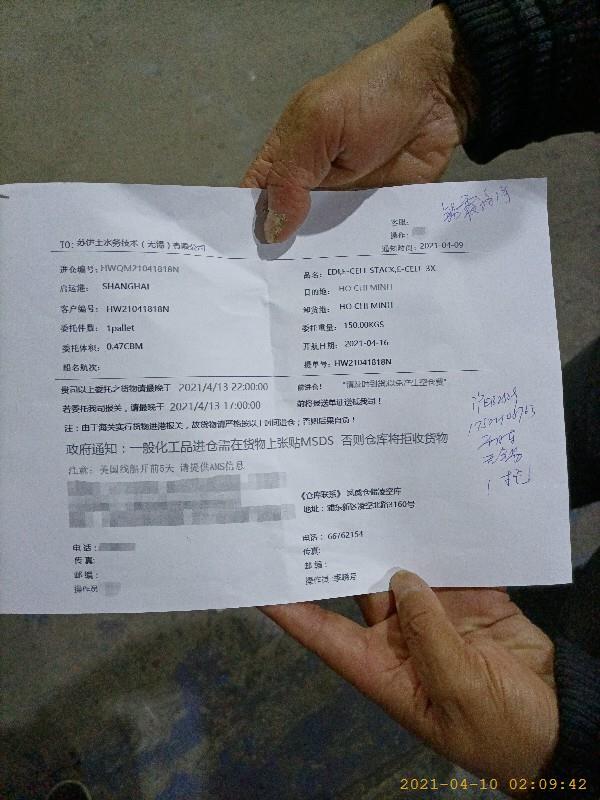 客服:
操作:
TO: 苏伊士水务技术（无锡）有限公司
通知时间: 2021-04-09
进仓编号: HWQM21041818N
品名: EDI,E-CELL STACK,E-CELL 3X,
启运港: SHANGHAI
目的地: HO CHI MINH
客户编号: HW21041818N
卸货港: HO CHI MINH
委托件数: 1pallet
委托重量: 150.00KGS
委托体积: 0.47CBM
开航日期: 2021-04-16
船名航次:
提单号: HW21041818N
贵司以上委托之货物请最晚于 2021/4/13 22:00:00 前进仓! "请及时到货,以免产生空仓费"
若委托我司报关，请最晚于 2021/4/13 17:00:00 前将报送单证送抵我司!
注：由于海关实行货物进港报关，故货物请严格按以上时间进仓；否则后果自负!
政府通知：一般化工品进仓需在货物上张贴MSDS 否则仓库将拒收货物
注意: 美国线船开前5天 请提供AMS信息
《仓库联系》
地址: 浦东新区凌空北路3160号
电话:
传真:
邮编:
操作员
电话: 66762154
传真:
邮编:
操作员
2021-04-10 02:09:42